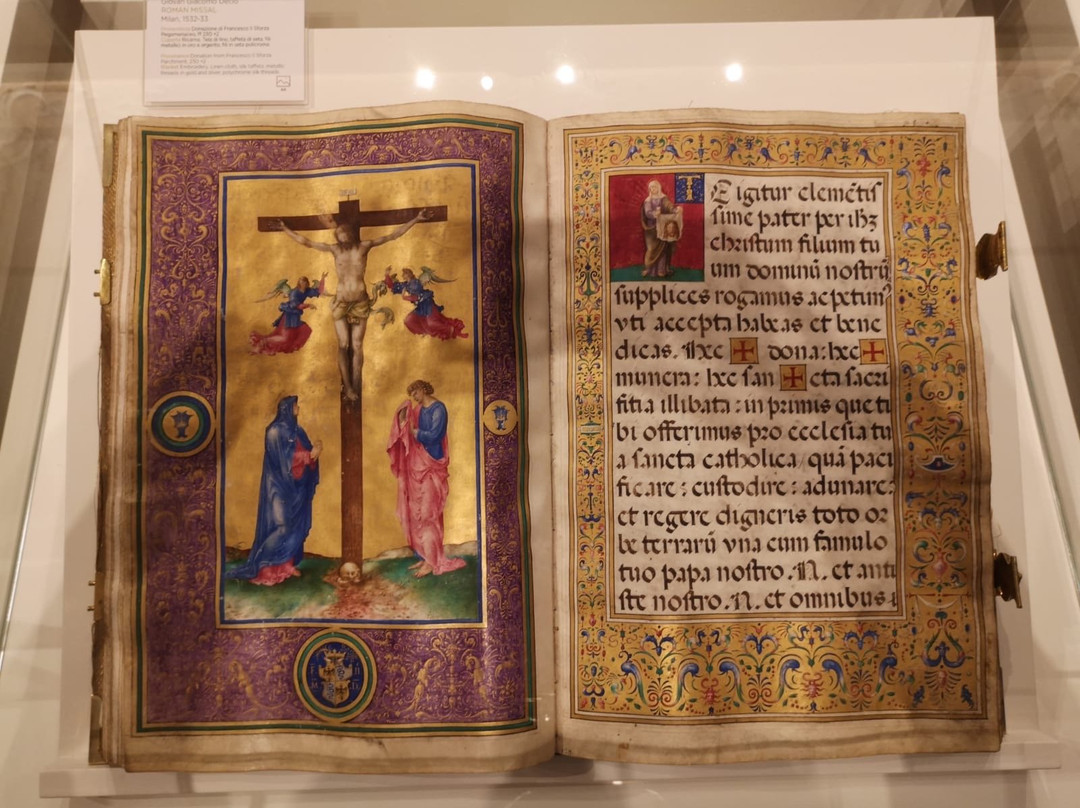 Giovan Giacomo Decio
ROMAN MISSAL
Milan, 1532-33
Donazione di Francesco II Sforza
Donation from Francesco II Sforza
TE igitur clemẽtis
sime pater per ihz
christum filium tu
um dominũ nostrũ
supplices rogamus ac petim9
vti accepta habeas et bene
dicas. Hec ✠ dona: hec ✠
munera: hec san ✠ cta sacri
ficia illibata: in primis que ti
bi offerimus pro ecclesia tu
a sancta catholica, quã paci
ficare: custodire: adunare:
et regere digneris toto or
be terrarũ vna cum famulo
tuo papa nostro .N. et anti
ste nostro .N. et omnibus